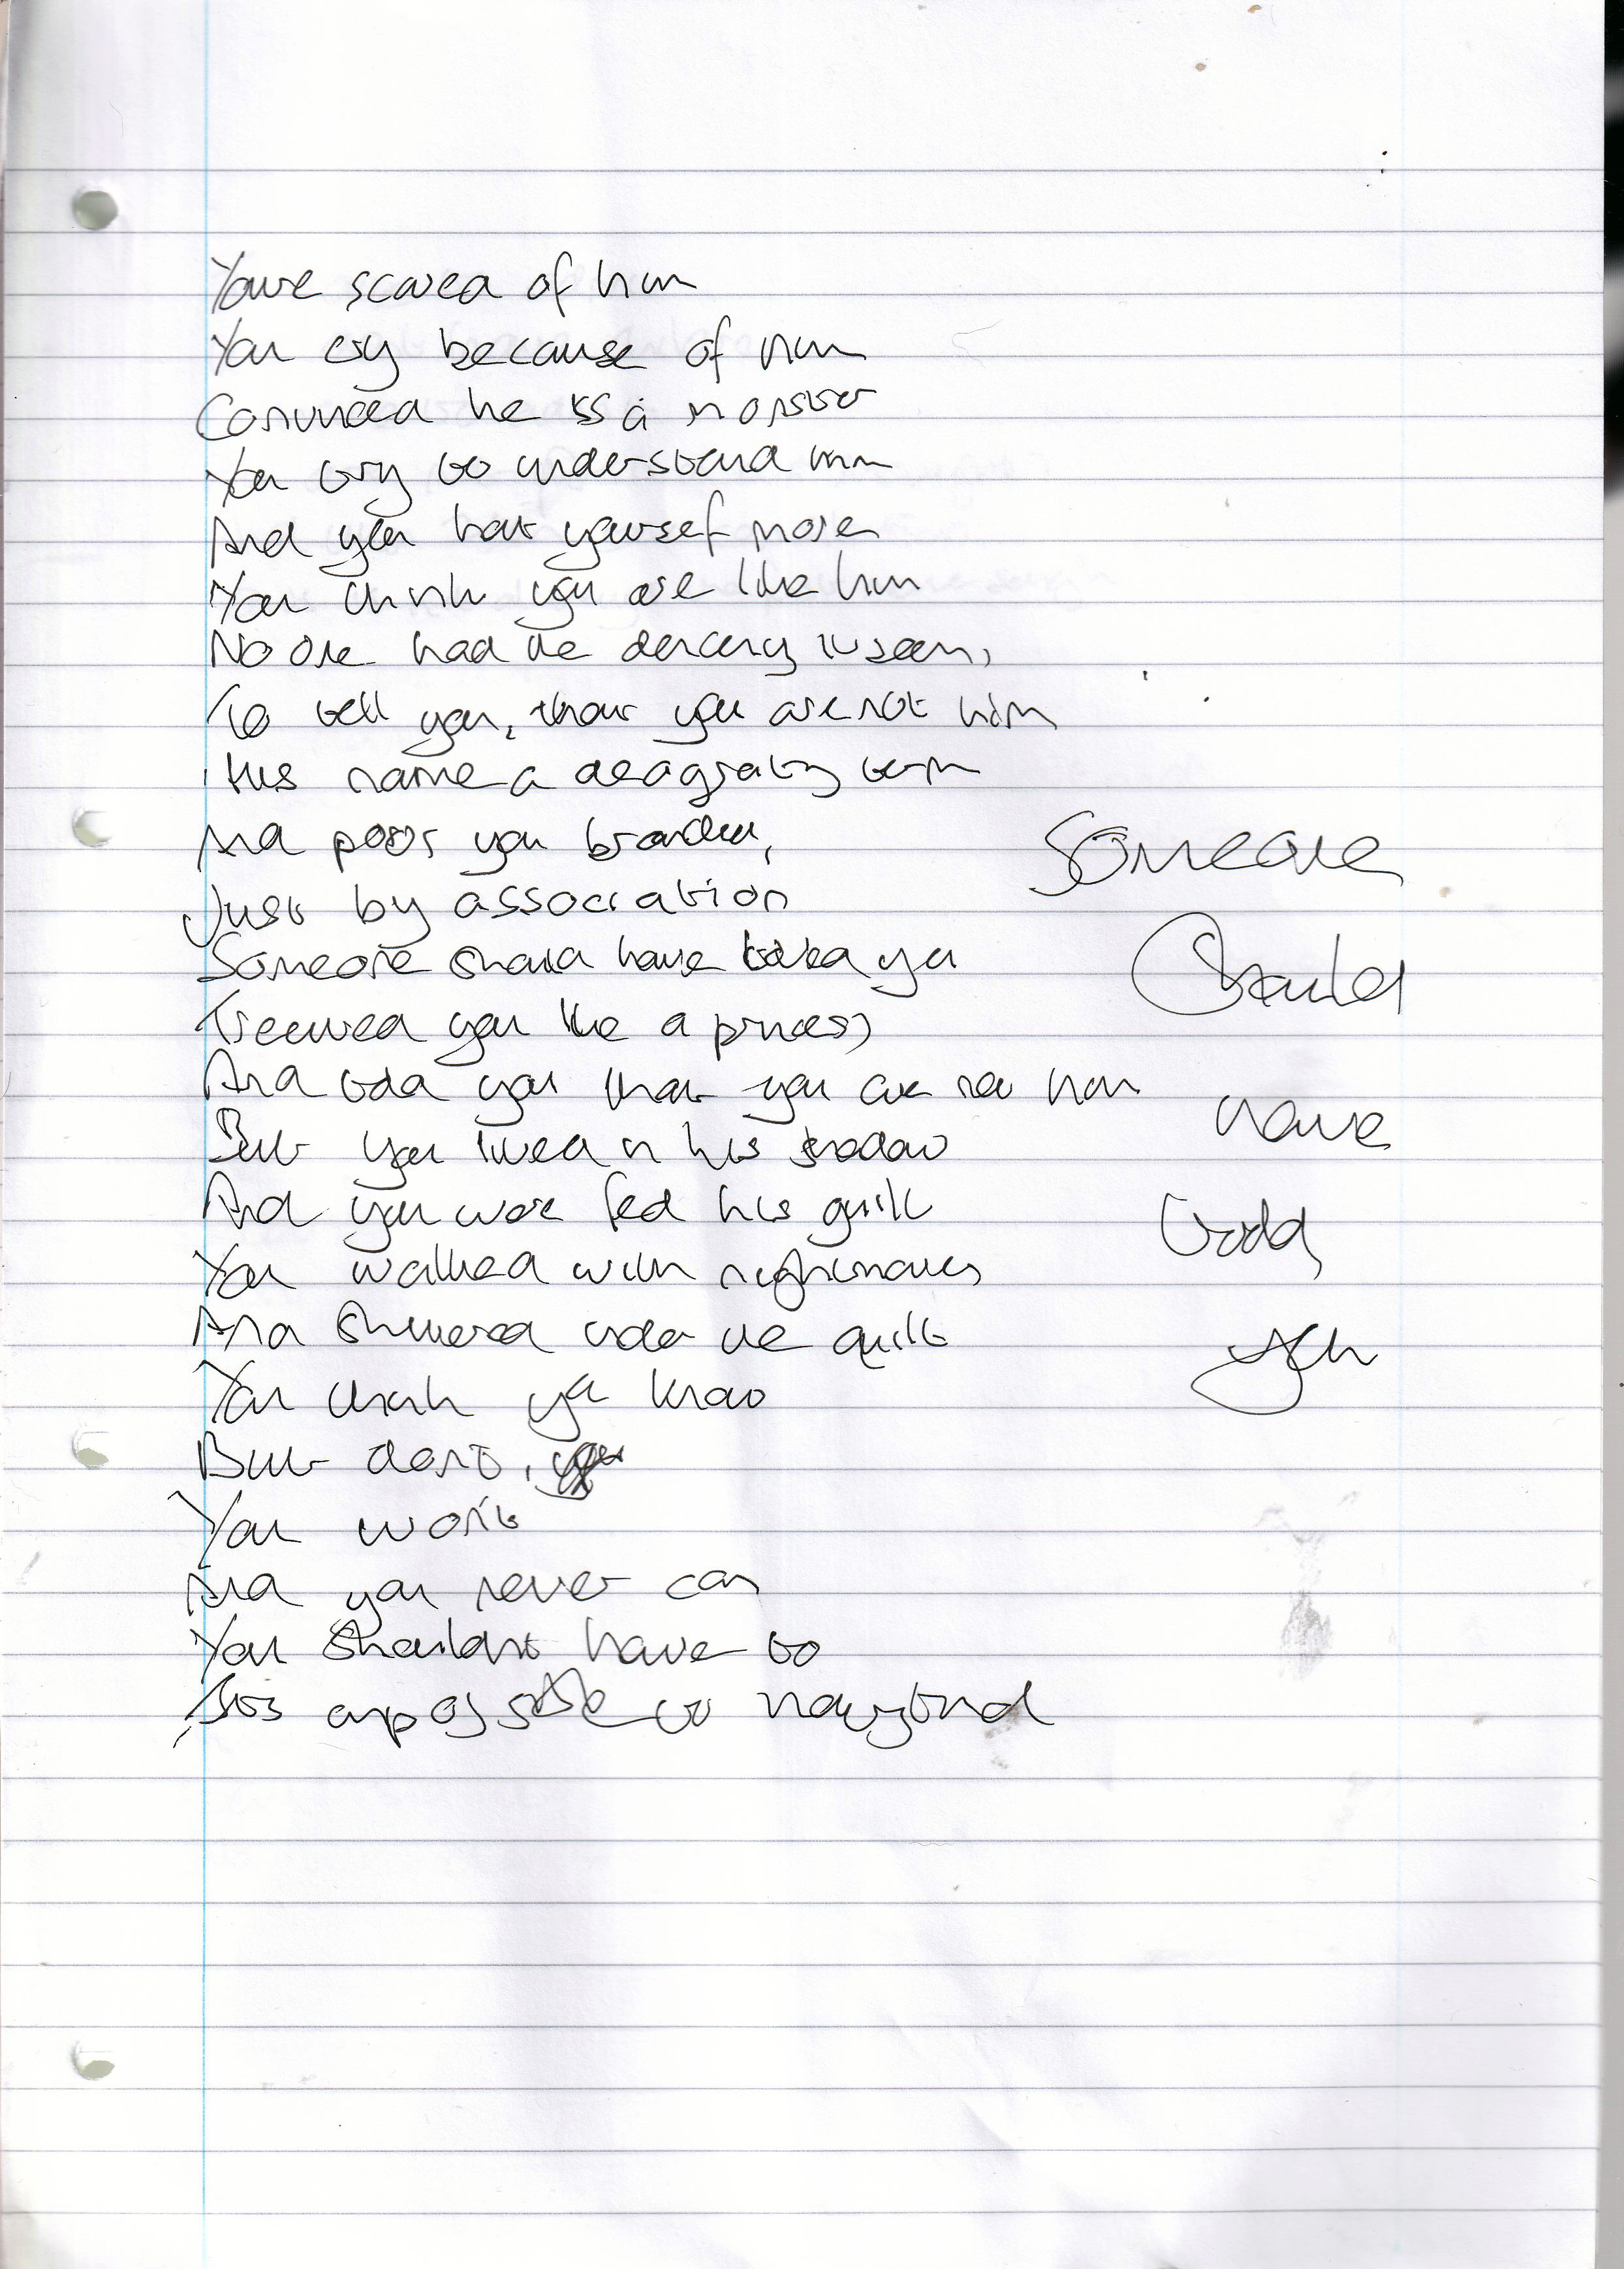 You're scared of him
You cry because of him
Convinced he is a monster
You try to understand him
And you hate yourself more
You think you are like him
No one had the decency it seems,
To tell you, that you are not him
His name a term
And poor you branded,
Just by association
Someone should have told you
Treated you like a princess
And told you that you are not him
But you lived in his shadow
And you were fed his guilt
You walked with nightmares
And shivered under the quilt
You think you know
But don't,
You won't
And you never can
You shouldn't have to
to
Someone
Should
have
told
you